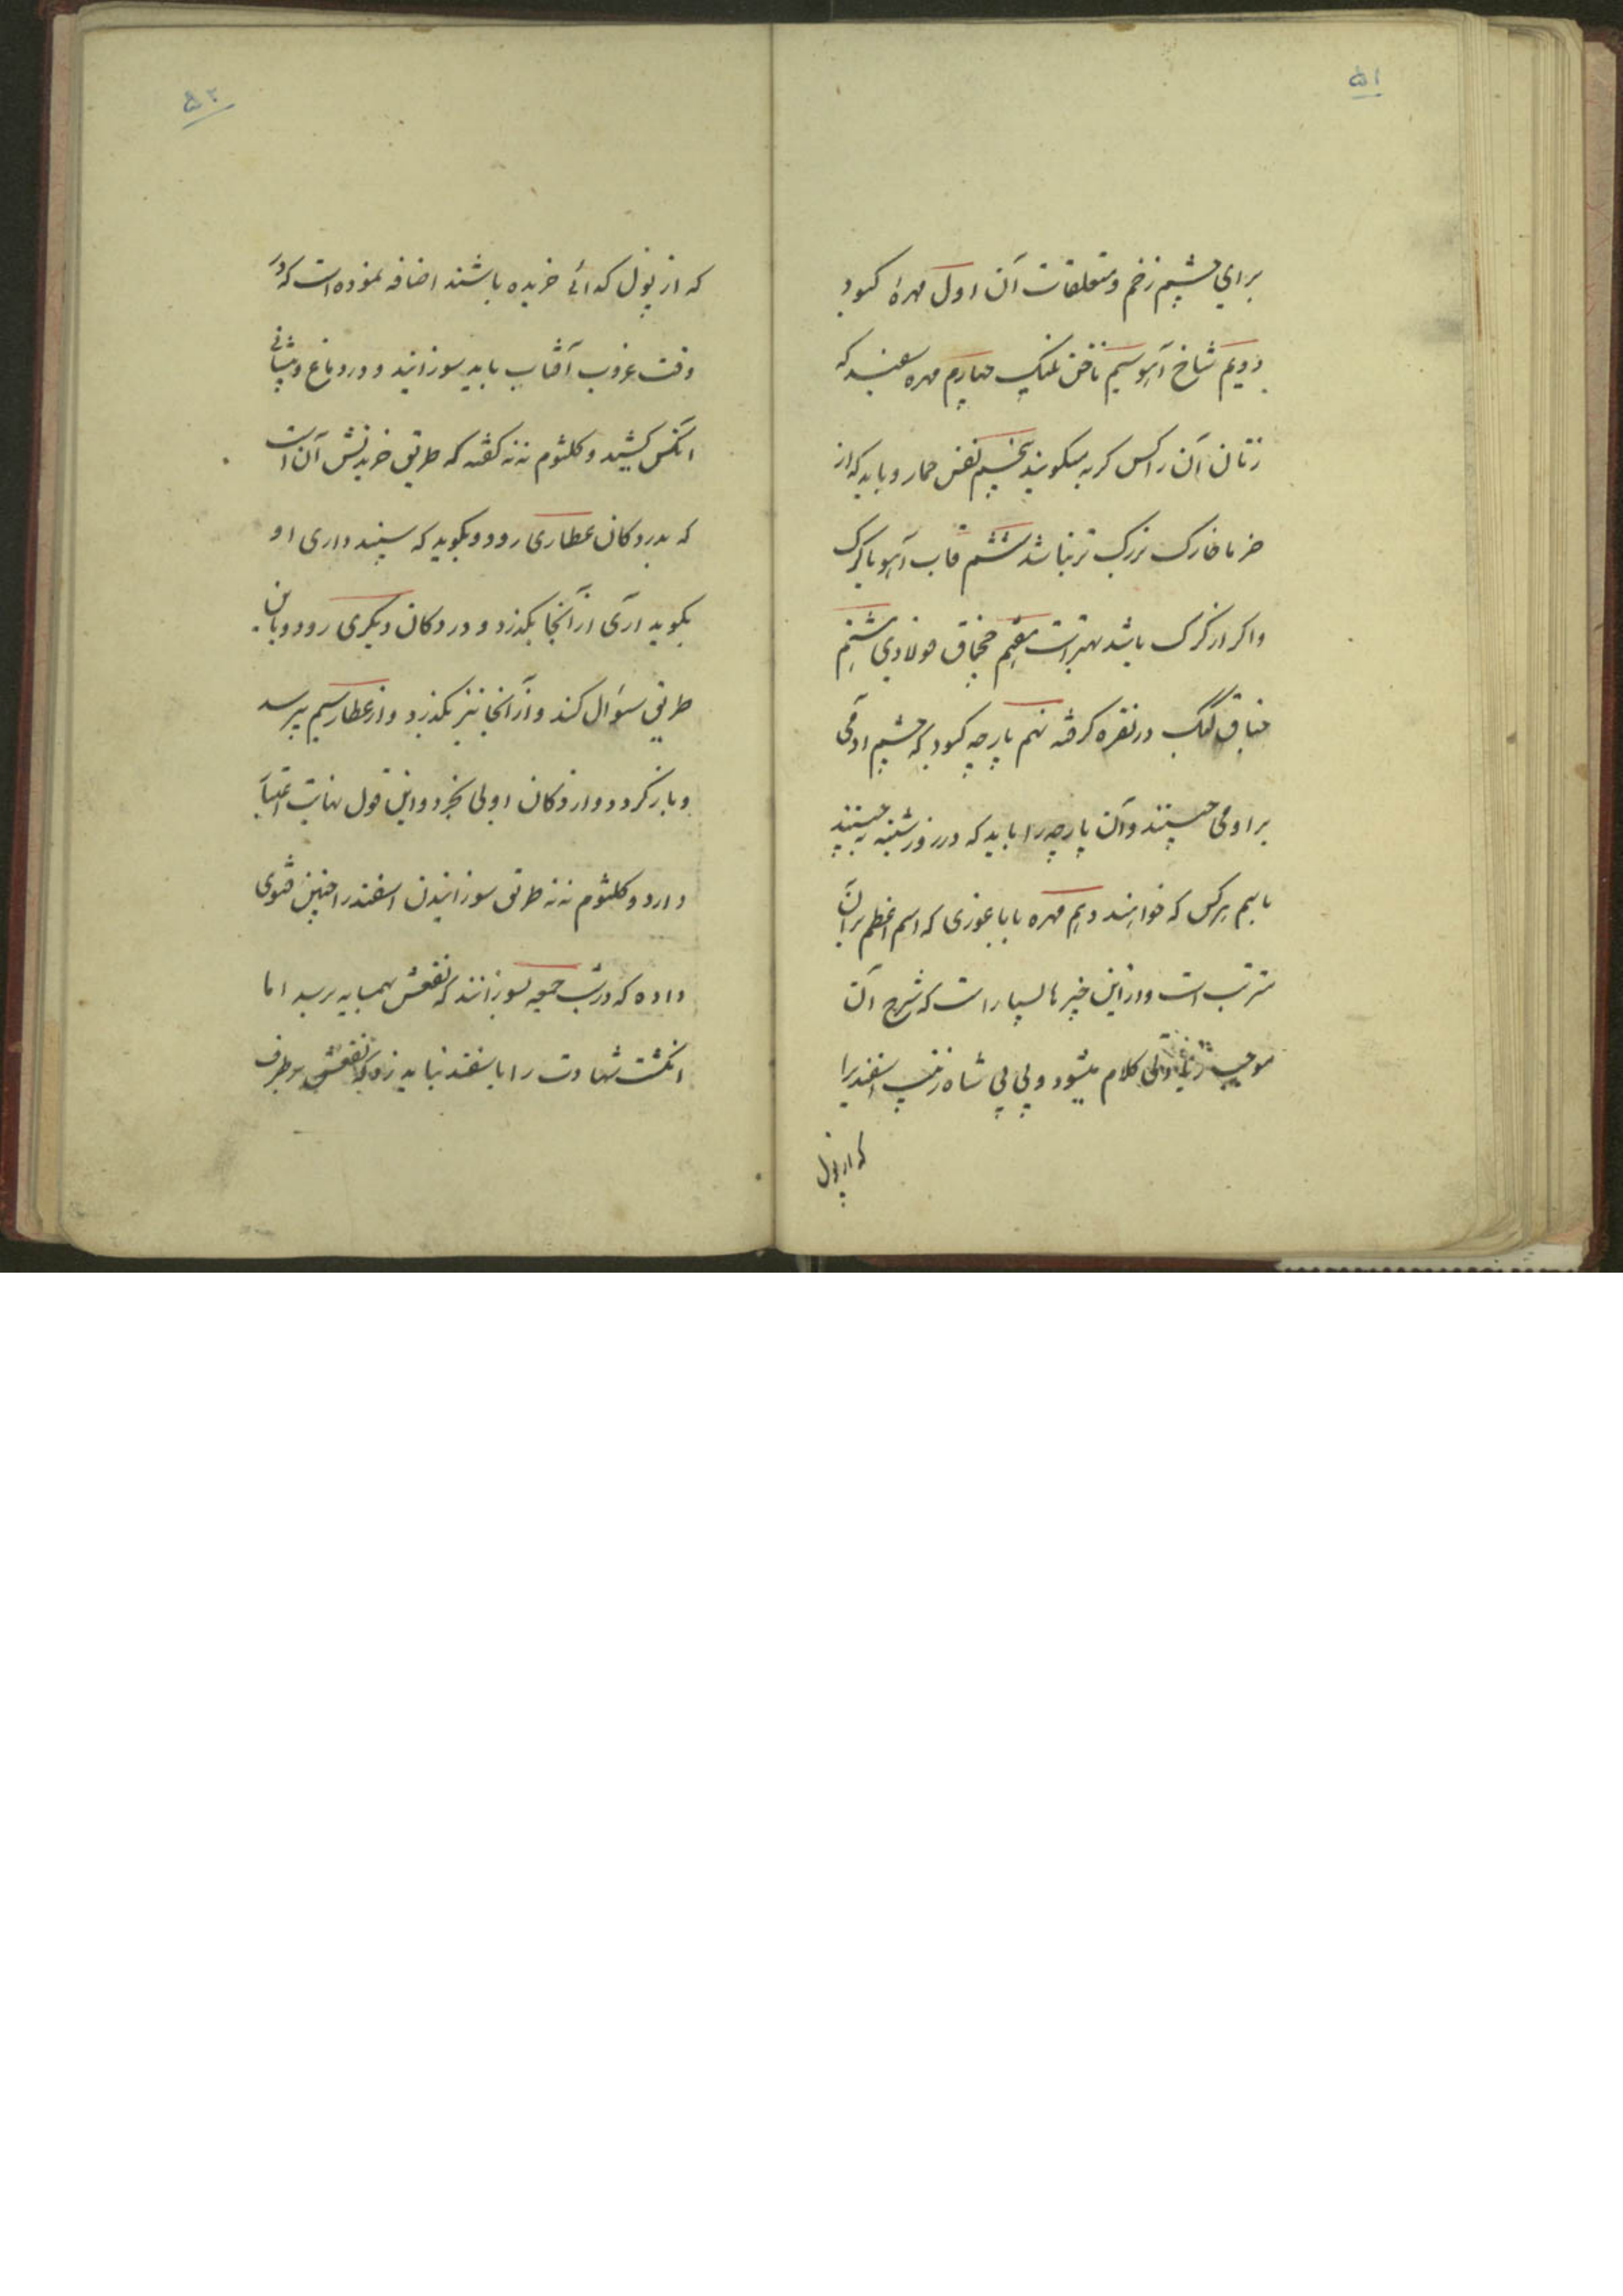 ۵۱
برای چشم زخم و متعلقات آن اول مهرهٔ کبود
دویم شاخ آهو سیم ناخن پلنک چهارم مهره سفید که
زنان آن را کس کربه میکویند پنجم کفش حمار و باید که از
خرما خارک بزرک تر نباشد ششم قاب آهو یا کرک
و اکر از کرک باشد بهتر است هفتم چخماق فولادی هشتم
در نقره کرفته نهم پارچه کبود که چشم آدمی
بر او می چسبنند و آن پارچه را باید که در روز شنبه بچسبنند
باسم هرکس که خواهند دهم مهره باباغوری که اسم اعظم بر آن
مترتب است و از این چیزها بسیار است که شرح آن
موجب کلام میشود و بی بی شاه زینب اسفند را
که از پول
۵۲
که از پول کدائی خریده باشند اضافه نموده است که در
وقت غروب آفتاب باید سوزانید و در دماغ و پیشانی
آنکس کشید و کلثوم ننه کفته که طریق خریدنش آن است
که بدر دکان عطاری رود و بکوید که سپند داری او
بکوید آری از آنجا بکذرد و در دکان دیکری رود و باین
طریق سؤال کند و از آنجا نیز بکذرد و از عطار سیم بپرسد
و باز کردد و از دکان اولی بخرد و این قول نهایت اعتبار
دارد و کلثوم ننه طریق سوزانیدن اسفند را چنین فتوی
داده که در شب جمعه بسوزانند که نفعش بهمسایه برسد اما
انکشت شهادت را باسفند نباید زد که نفعش برطرف